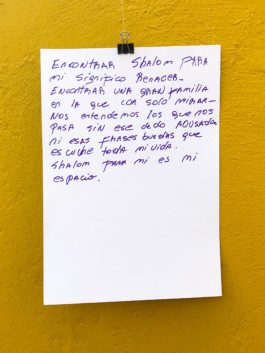 Encontrar Shalom para
mi significo Renacer.
Encontrar una gran familia
en la que con solo mirar-
nos entendemos los que nos
pasa sin ese dedo acusador
ni esas frases burdas que
escuche toda mi vida.
Shalom para mi es mi
espacio.